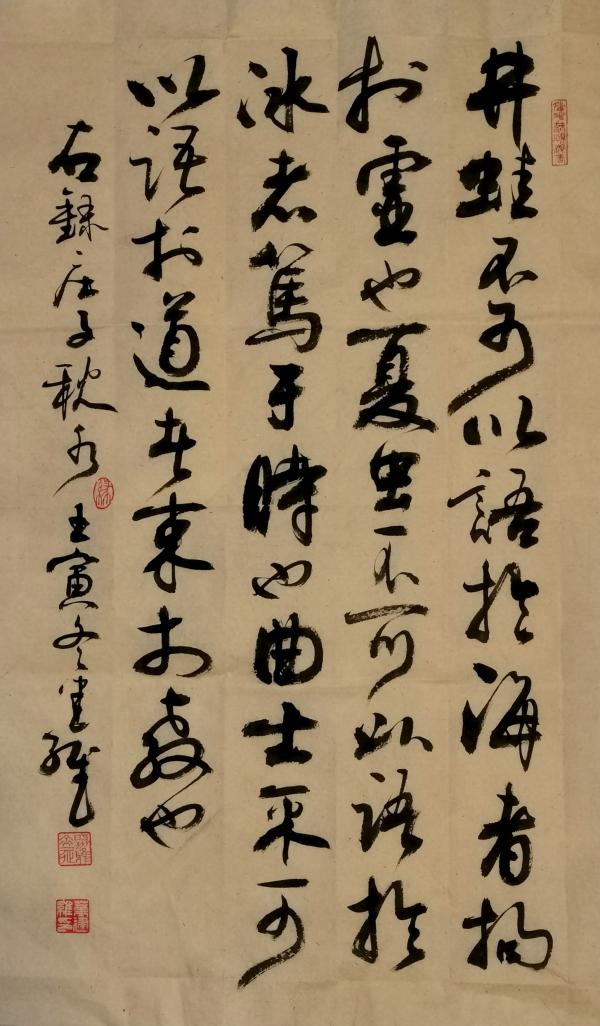 井蛙不可以語於海者拘
於虛也夏虫不可以語於
冰者篤于時也曲士不可
以語於道者束於教也
右錄庄子秋水 壬寅冬